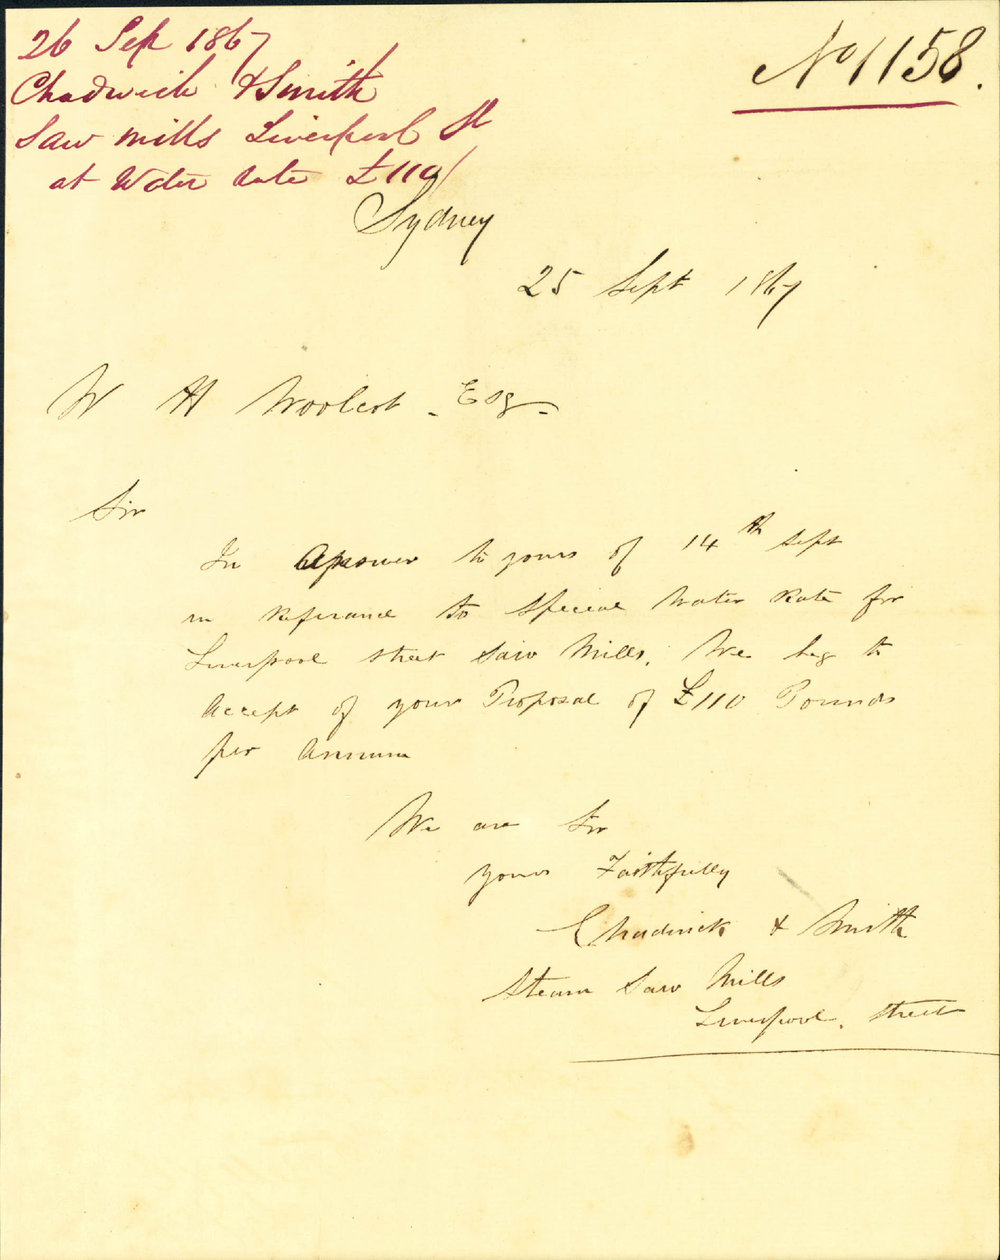 26 Sep 1867
Chadwick & Smith
Saw mills Liverpool St
at Water rate £110/
No 1158.
Sydney
25 Sept 1867
W H Woolcot - Esq -
Sir
In Answer to yours of 14th Sept
in Referance to Special Water Rate for
Liverpool street Saw Mills, We beg to
Accept of your Proposal of £110 Pounds
per Annum
We are Sir
yours Faithfully
Chadwick & Smith
Steam Saw Mills
Liverpool, Street